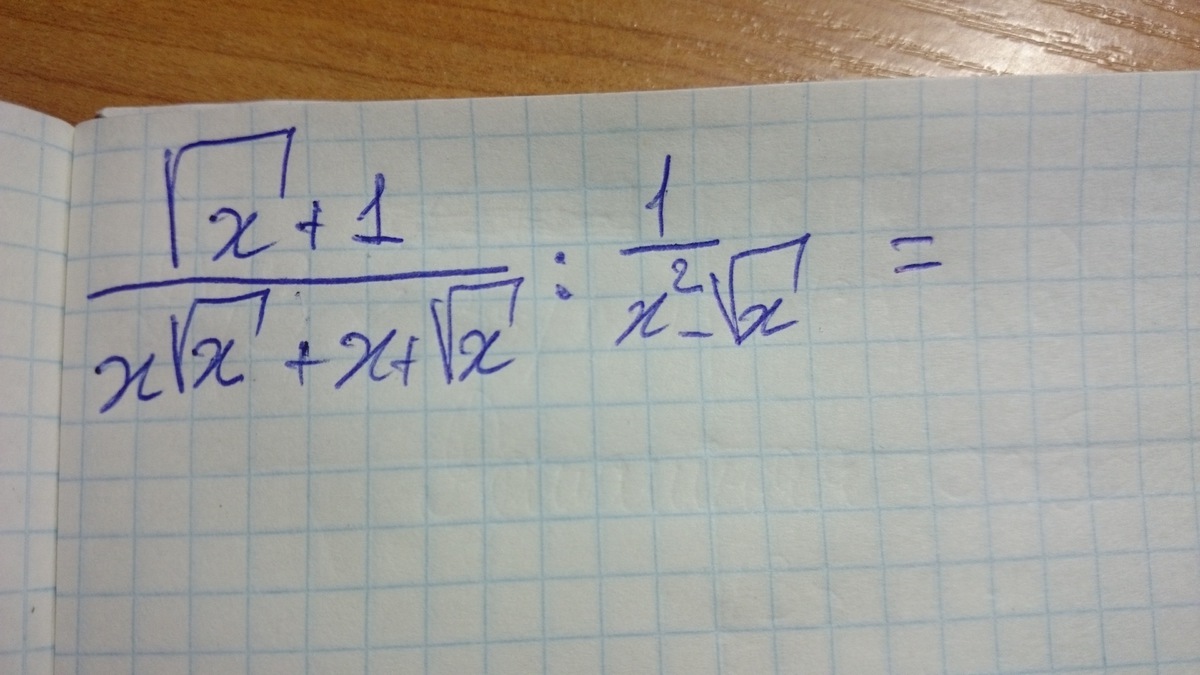 (√x + 1)/(x√x + x + √x) : 1/(x² - √x) =